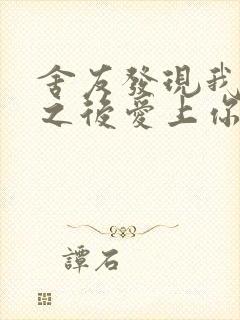 舍友發現我
之後愛上你
譚石